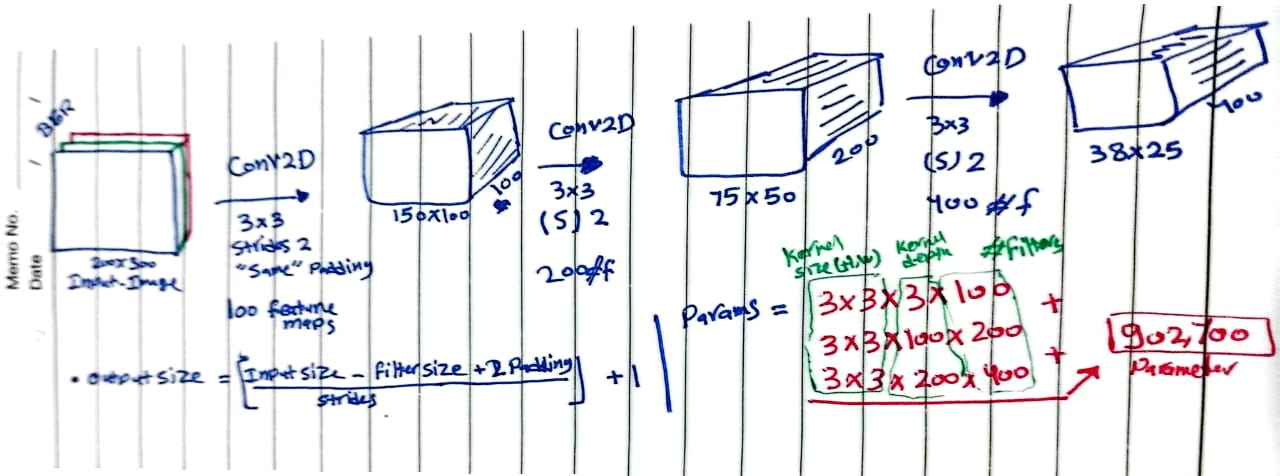 Memo No.
Date / /
BGR
200x300
Input-Image
Conv2D
3x3
Strides 2
"Same" Padding
100 feature
maps
150x100
100
Conv2D
3x3
(S) 2
200#f
75x50
200
Conv2D
3x3
(S) 2
400 #f
38x25
400
• output size = [Input size - filter size + 2 Padding / strides] + 1
Params =
Kernel
size (H,W)
Kernel
depth
#Filters
3x3x3x100 +
3x3x100x200 +
3x3x200x400
902,700
Parameter